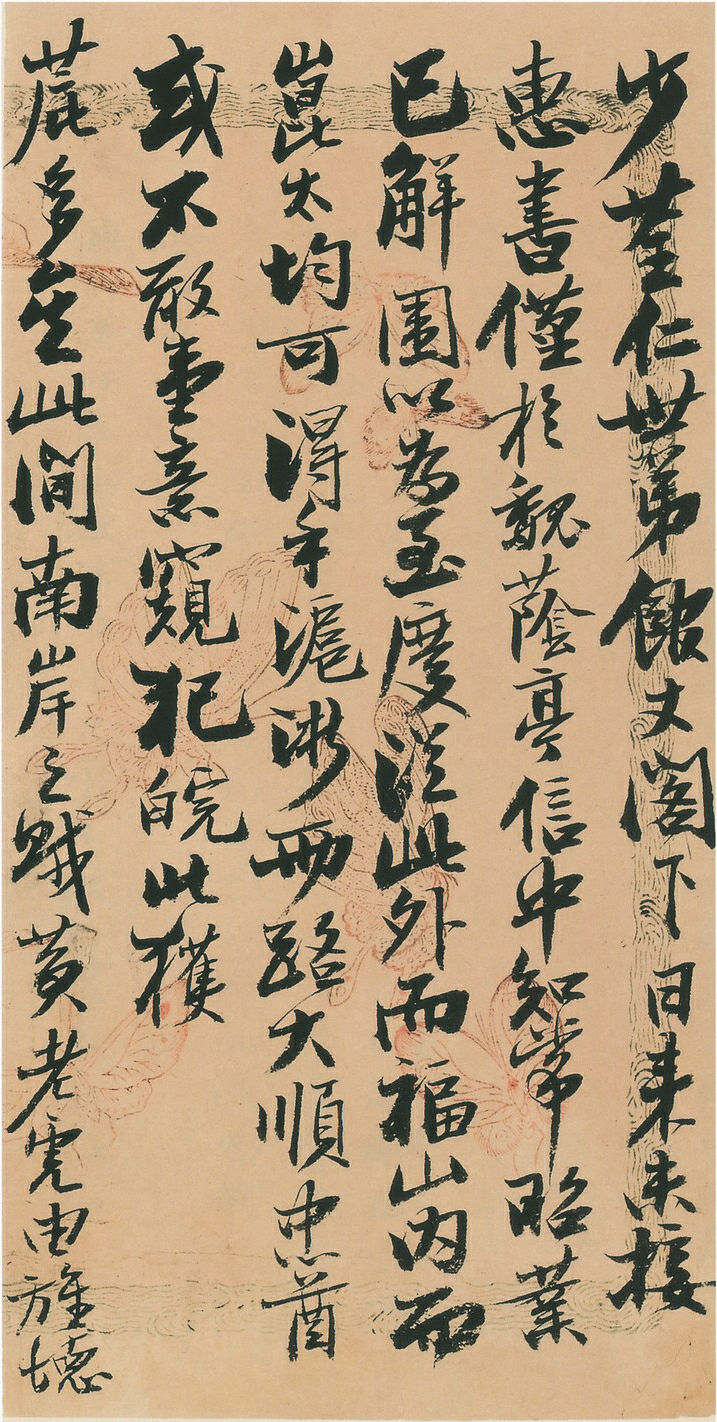 少荃仁世弟館丈閣下日来未接
惠書僅於魏蔭亭信中知常昭業
已解圍以為至慶從此外而福山内而
崑太均可得手滬淛兩路大順忠酋
或不敢壹意窺犯皖北獲
庇多矣此間南岸之賊黃老虎由旌德